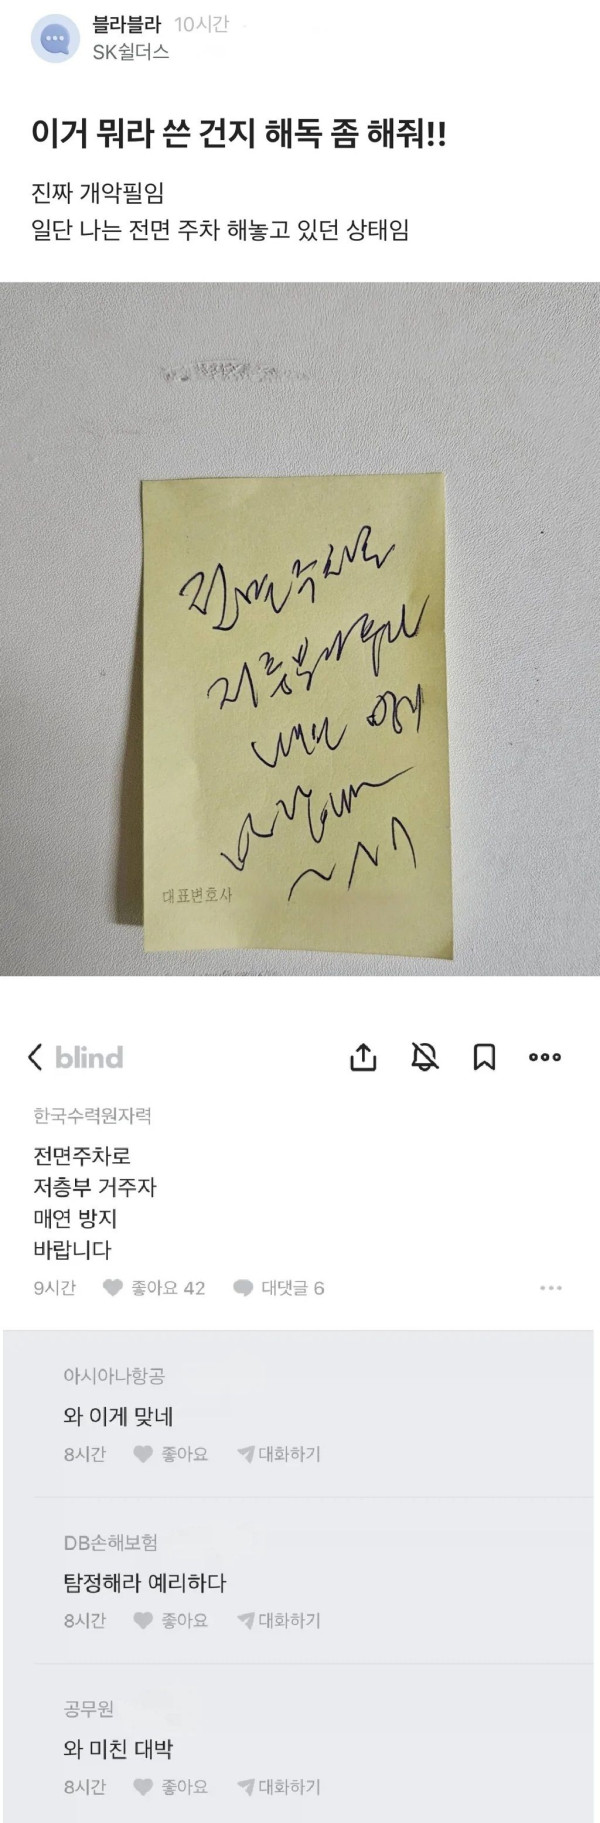 블라블라 10시간 ·
SK쉴더스
이거 뭐라 쓴 건지 해독 좀 해줘!!
진짜 개악필임
일단 나는 전면 주차 해놓고 있던 상태임
전면주차로
저층부
대표변호사
blind
한국수력원자력
전면주차로
저층부 거주자
매연 방지
바랍니다
9시간 좋아요 42 대댓글 6
아시아나항공
와 이게 맞네
8시간 좋아요 대화하기
DB손해보험
탐정해라 예리하다
8시간 좋아요 대화하기
공무원
와 미친 대박
8시간 좋아요 대화하기